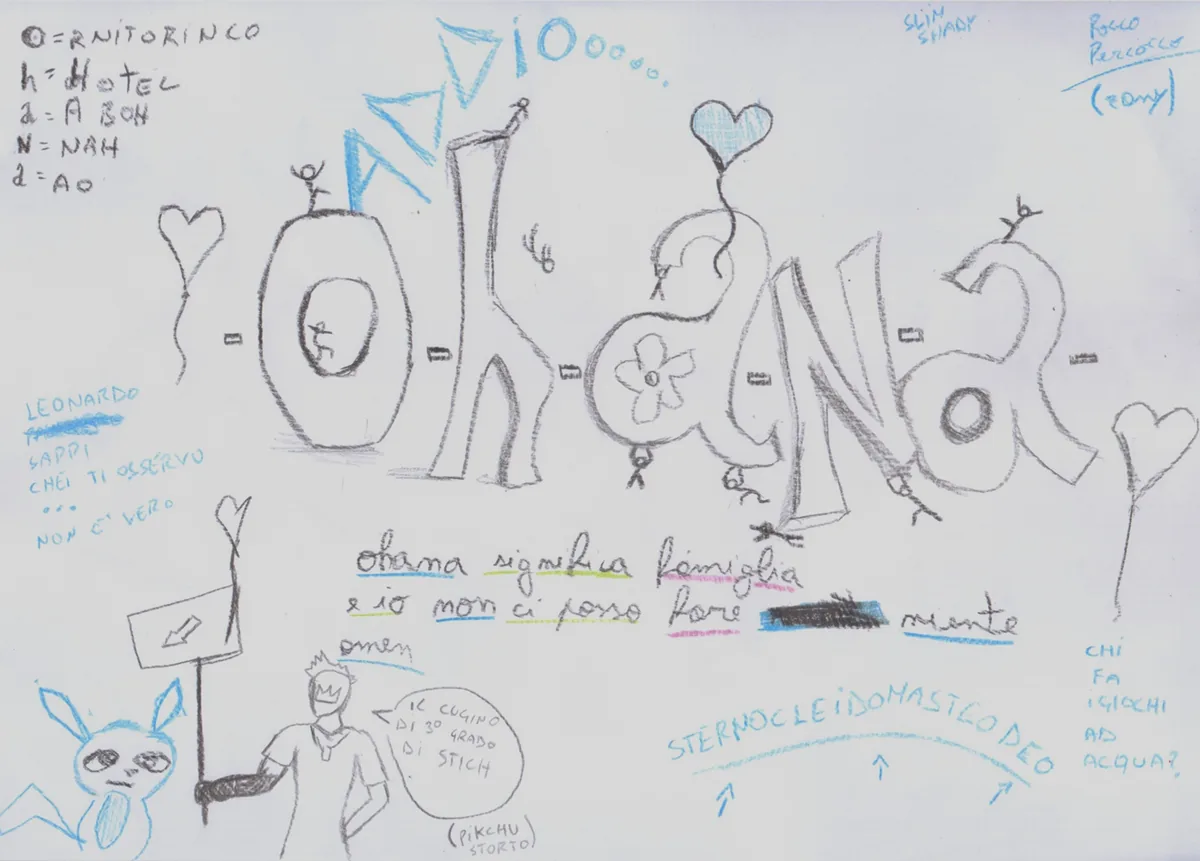 O=RNITORINCO
h=HOTEL
a=A BOH
N=NAH
a=AO
ADDIO.......
SLIM
SHADY
ROCCO
PERCOCCO
-Oh-a-N-a-
LEONARDO
SAPPI
CHEI TI OSSERVO
...
NON E' VERO
ohana significa famiglia
e io non ci posso fare niente
amen
IL CUGINO
DI 3° GRADO
DI STICH
(PIKCHU
STORTO)
STERNOCLEIDOMASTCODEO
CHI
FA
I GIOCHI
AD
ACQUA?